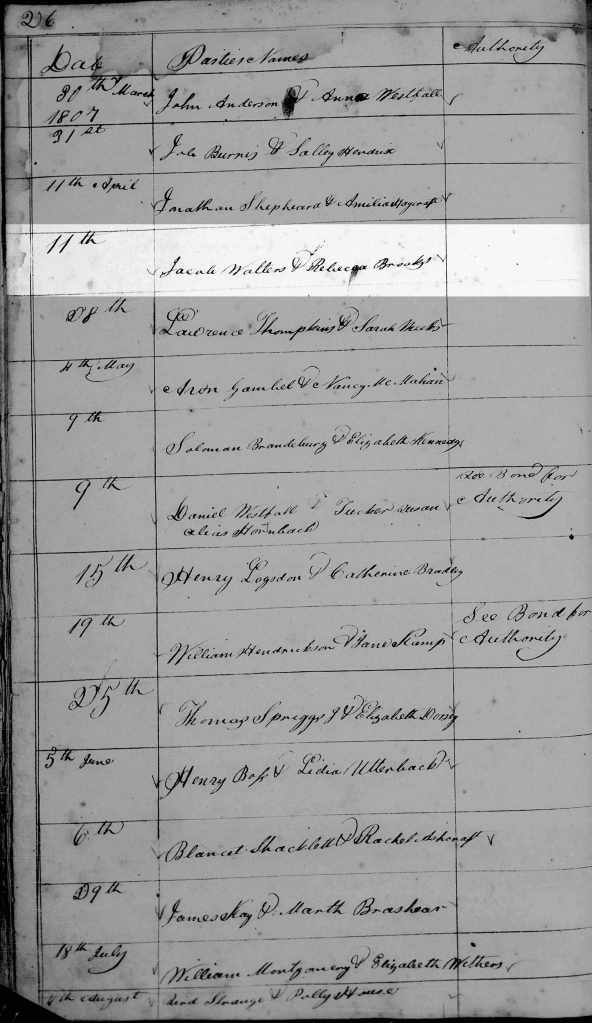 26
Date Parties Names Authority
30th March 1807 John Anderson & Anna Westfall
31st Burris & Salley Hendrix
11th April Jonathan Shepheard & Amilia Haycraft
11th Jacob Walters & Rebecca
28th Lawrence Thompkins & Sarah
4th May Aron Gambel & Nancy McMahan
9th Soloman Brandeburg & Elizabeth Kennedy
9th Daniel Westfall & Tucker Susan See Bond for
alias Hornback Authority
15th Henry Logsdon & Catherine Bradley
19th William Hendrickson & Jane Kump See Bond for
Authority
25th Thomas Spriggs & Elizabeth Dorsey
5th June Henry & Lidia Utterback
6th Blancet Shacklett & Rachel Ashcraft
29th James Kay & Marth Brashear
18th July William Montgomery & Elizabeth Withers
August Strange & Polly House